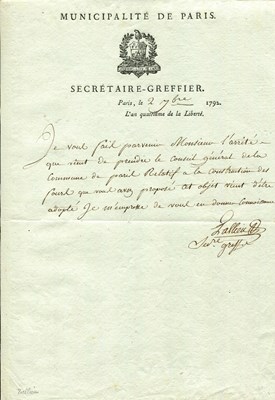 MUNICIPALITÉ DE PARIS.
SECRÉTAIRE-GREFFIER.
Paris, le 2 7bre 1792.
L'an quatrième de la Liberté.
Je vous fais parvenir Monsieur l'arrêté
que vient de prendre le Conseil général de la
Commune de paris Relatif a la construction des
fours que vous avez proposé cet objet vient d'être
adopté Je m'empresse de vous en donner connoissance
Tallien
Sre greffier
Tallien